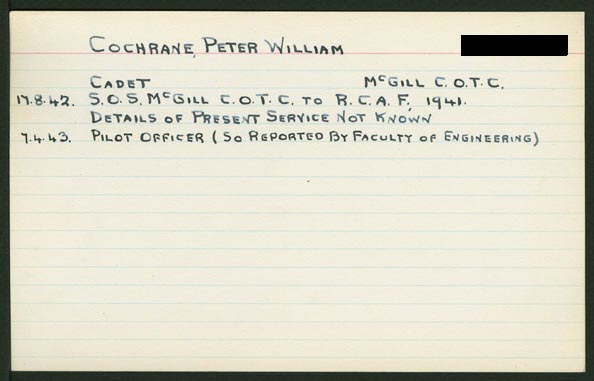 COCHRANE, PETER WILLIAM
CADET McGILL C.O.T.C.
17.8.42. S.O.S. McGILL C.O.T.C. TO R.C.A.F., 1941.
DETAILS OF PRESENT SERVICE NOT KNOWN
7.4.43. PILOT OFFICER (SO REPORTED BY FACULTY OF ENGINEERING)